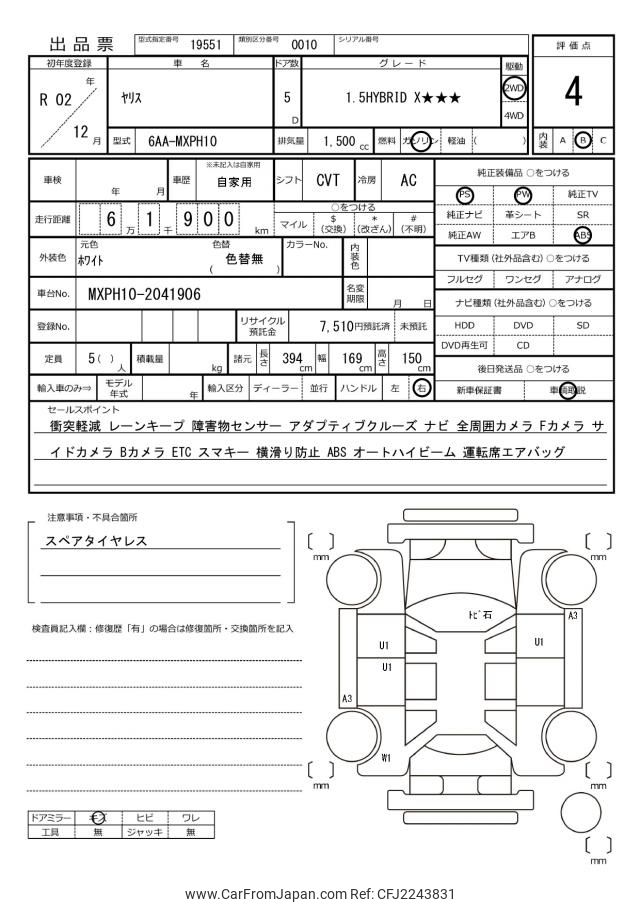 出品票
型式指定番号 19551 類別区分番号 0010 シリアル番号
評価点
4
内装 A B C
初年度登録 車名 ドア数 グレード 駆動
R 02 年 ヤリス 5 D 1.5HYBRID X★★★ 2WD
4WD
12 月 型式 6AA-MXPH10 排気量 1,500 cc 燃料 ガソリン 軽油 ( )
車検 年 月 車歴 ※未記入は自家用 自家用 シフト CVT 冷房 AC
走行距離 6 万 1 千 9 0 0 km
○をつける
マイル $ (交換) * (改ざん) # (不明)
外装色 元色 ホワイト 色替 ( 色替無 ) カラーNo. 内装色
車台No. MXPH10-2041906 名変期限 月 日
登録No. リサイクル預託金 7,510円預託済 未預託
定員 5( )人 積載量 kg 諸元 長さ 394 cm 幅 169 cm 高さ 150 cm
輸入車のみ⇒ モデル年式 年 輸入区分 ディーラー 並行 ハンドル 左 右
純正装備品 ○をつける
PS PW 純正TV
純正ナビ 革シート SR
純正AW エアB ABS
TV種類(社外品含む) ○をつける
フルセグ ワンセグ アナログ
ナビ種類(社外品含む) ○をつける
HDD DVD SD
DVD再生可 CD
後日発送品 ○をつける
新車保証書 車輌取説
セールスポイント
衝突軽減 レーンキープ 障害物センサー アダプティブクルーズ ナビ 全周囲カメラ Fカメラ サ
イドカメラ Bカメラ ETC スマキー 横滑り防止 ABS オートハイビーム 運転席エアバッグ
注意事項・不具合箇所
スペアタイヤレス
検査員記入欄：修復歴「有」の場合は修復箇所・交換箇所を記入
ドアミラー キズ ヒビ ワレ
工具 無 ジャッキ 無
mm
mm
トビ石
A3
U1
U1
U1
A3
W1
mm
mm
mm
www.CarFromJapan.com Ref: CFJ2243831